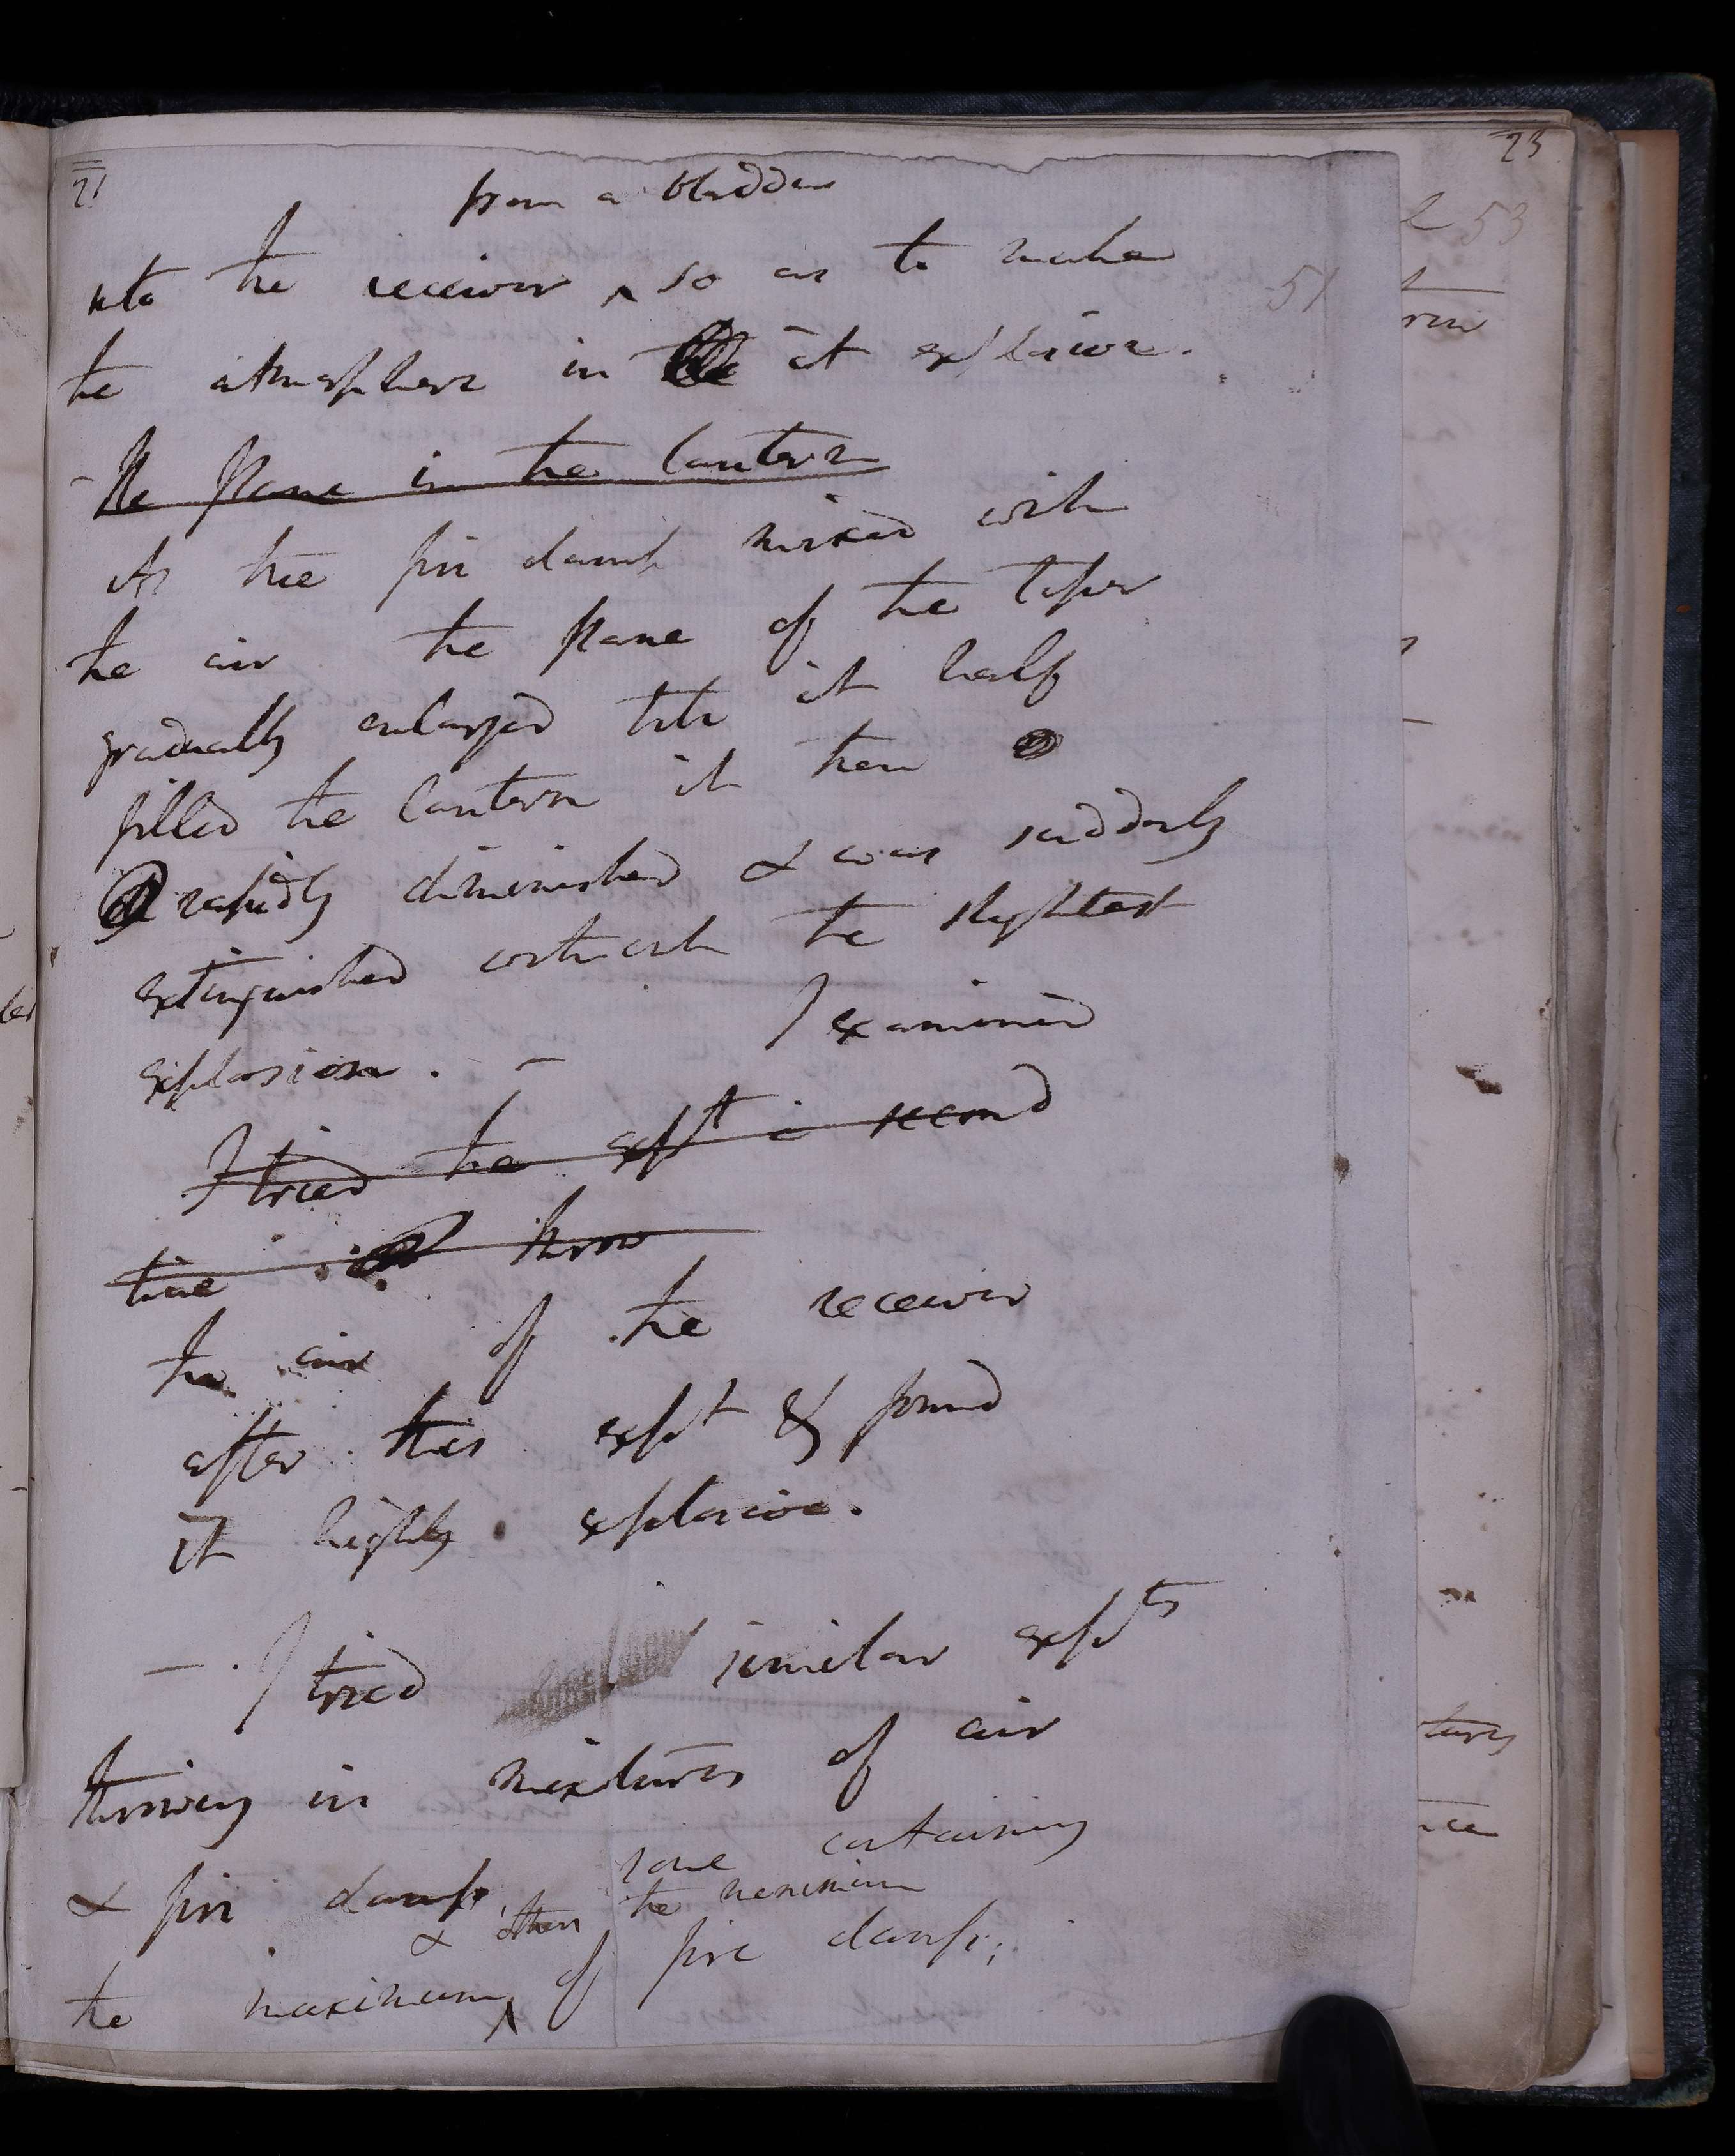 21
23
253
51
from a bladder
into the receiver ^ so as to make
the atmosphere in it explosive.
- The flame in the lantern
As the fire damp mixed with
the air the flame of the taper
gradually enlarged till it half
filled the lantern it then
rapidly diminished & was suddenly
extinguished without the slightest
explosion. - I examined
I tried the expt a second
time throw
the air of the receiver
after this expt & found
it highly explosive.
- I tried similar expts
throwing in mixtures of air
& fire damp, some containing
& others the minimum
the maximum ^ of fire damp;